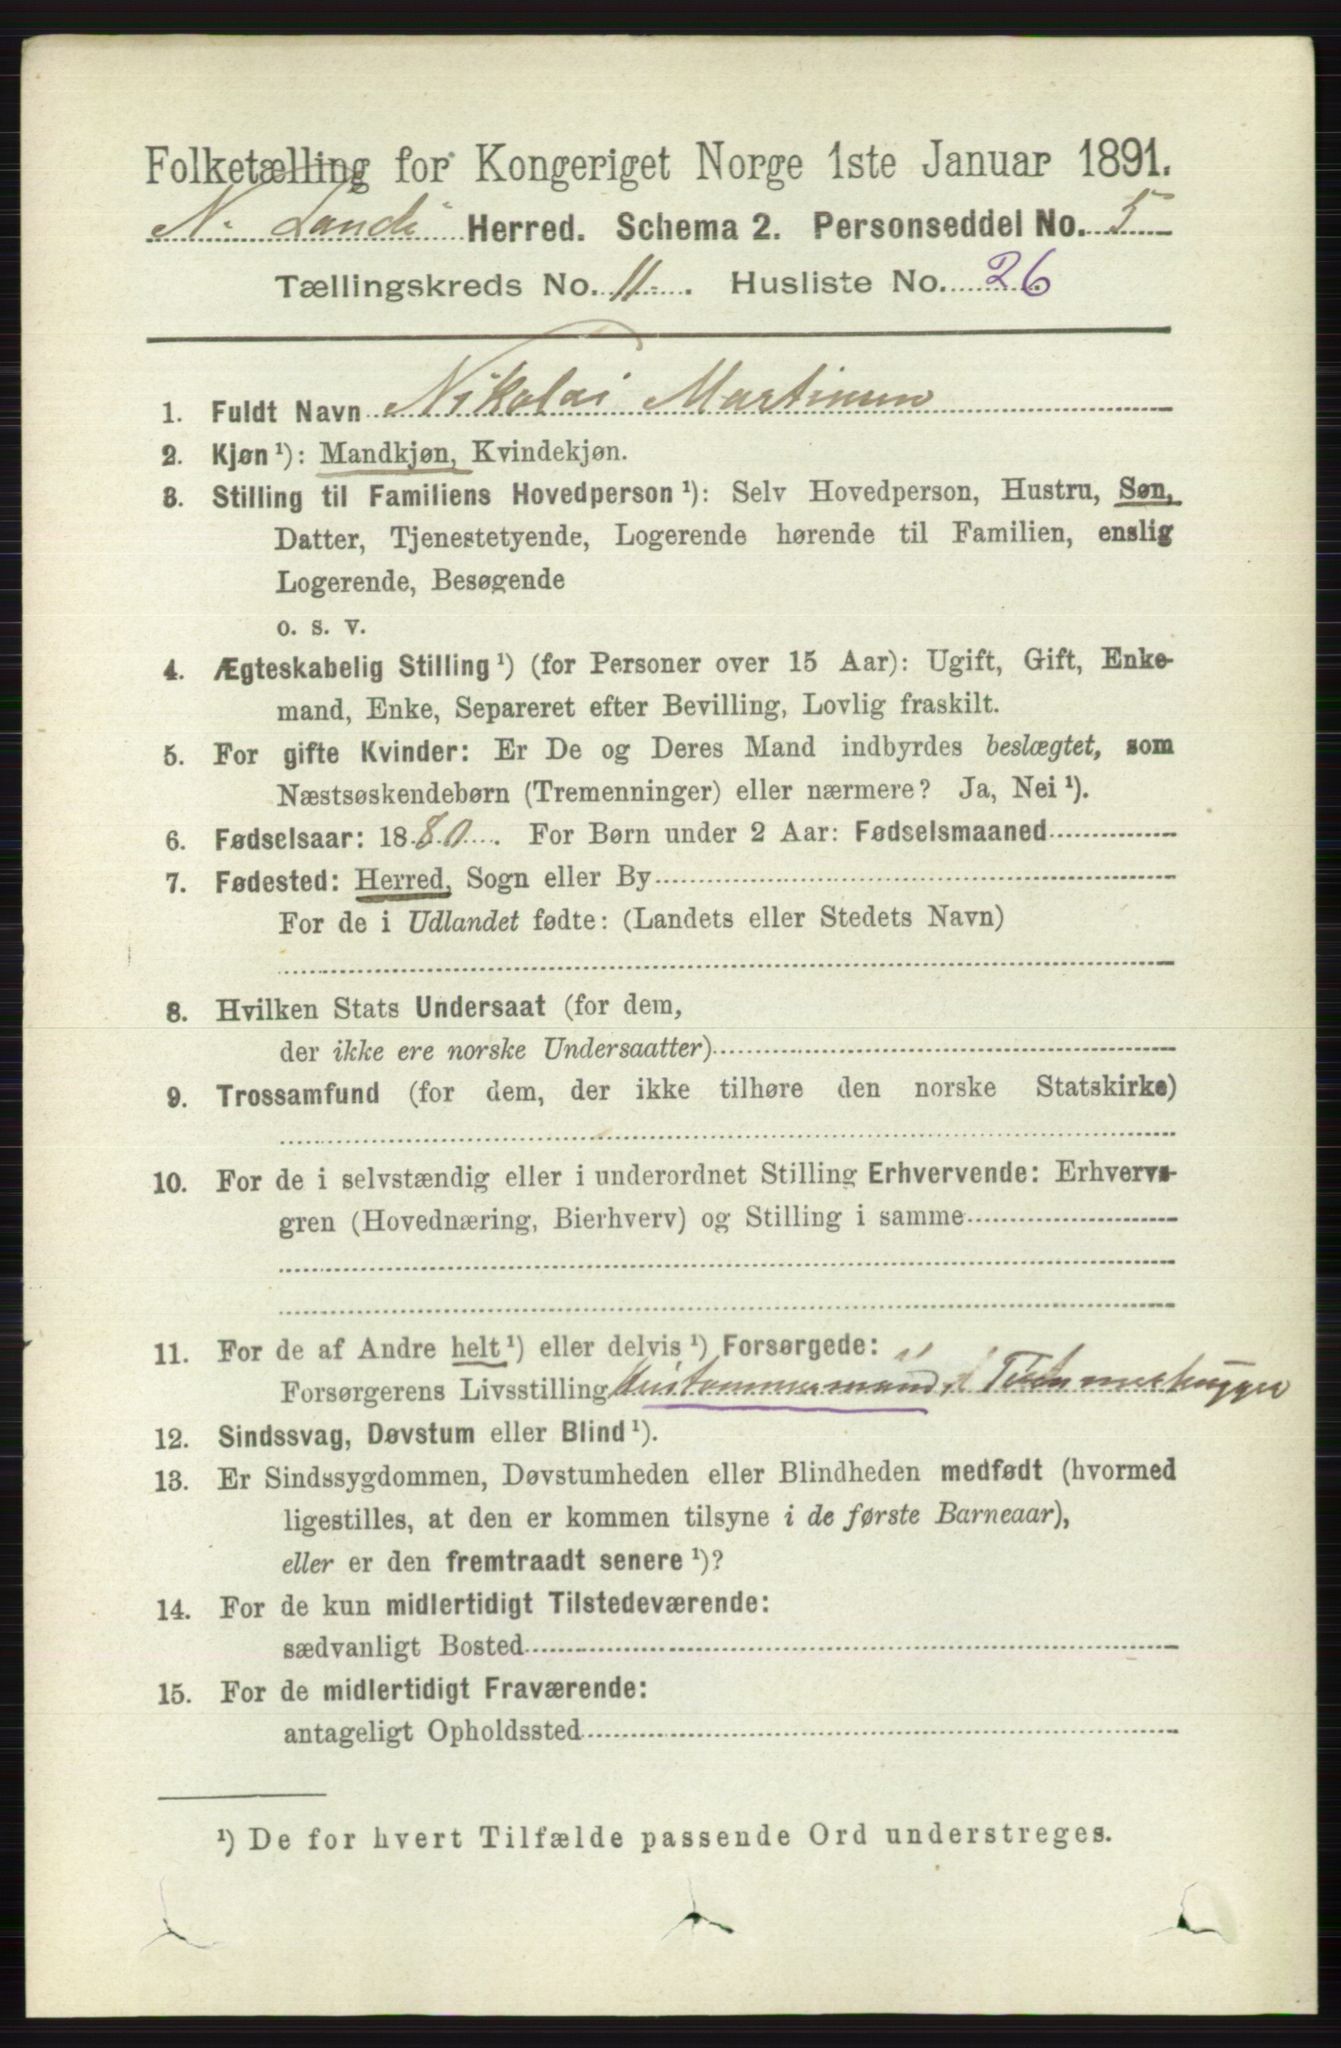 Folketælling for Kongeriget Norge 1ste Januar 1891.
N. Land Herred. Schema 2. Personseddel No. 5
Tællingskreds No. 11. Husliste No. 26
1. Fuldt Navn Nikolai Martinsen
2. Kjøn ¹): Mandkjøn, Kvindekjøn.
3. Stilling til Familiens Hovedperson ¹): Selv Hovedperson, Hustru, Søn,
Datter, Tjenestetyende, Logerende hørende til Familien, enslig
Logerende, Besøgende
o. s. v.
4. Ægteskabelig Stilling ¹) (for Personer over 15 Aar): Ugift, Gift, Enke-
mand, Enke, Separeret efter Bevilling, Lovlig fraskilt.
5. For gifte Kvinder: Er De og Deres Mand indbyrdes beslægtet, som
Næstsøskendebørn (Tremenninger) eller nærmere? Ja, Nei ¹).
6. Fødselsaar: 1880. For Børn under 2 Aar: Fødselsmaaned
7. Fødested: Herred, Sogn eller By
For de i Udlandet fødte: (Landets eller Stedets Navn)
8. Hvilken Stats Undersaat (for dem,
der ikke ere norske Undersaatter)
9. Trossamfund (for dem, der ikke tilhøre den norske Statskirke)
10. For de i selvstændig eller i underordnet Stilling Erhvervende: Erhvervs-
gren (Hovednæring, Bierhverv) og Stilling i samme
11. For de af Andre helt ¹) eller delvis ¹) Forsørgede:
Forsørgerens Livsstilling Hustømmermand, Tømmerhugger
12. Sindssvag, Døvstum eller Blind ¹).
13. Er Sindssygdommen, Døvstumheden eller Blindheden medfødt (hvormed
ligestilles, at den er kommen tilsyne i de første Barneaar),
eller er den fremtraadt senere ¹)?
14. For de kun midlertidigt Tilstedeværende:
sædvanligt Bosted
15. For de midlertidigt Fraværende:
antageligt Opholdssted
¹) De for hvert Tilfælde passende Ord understreges.